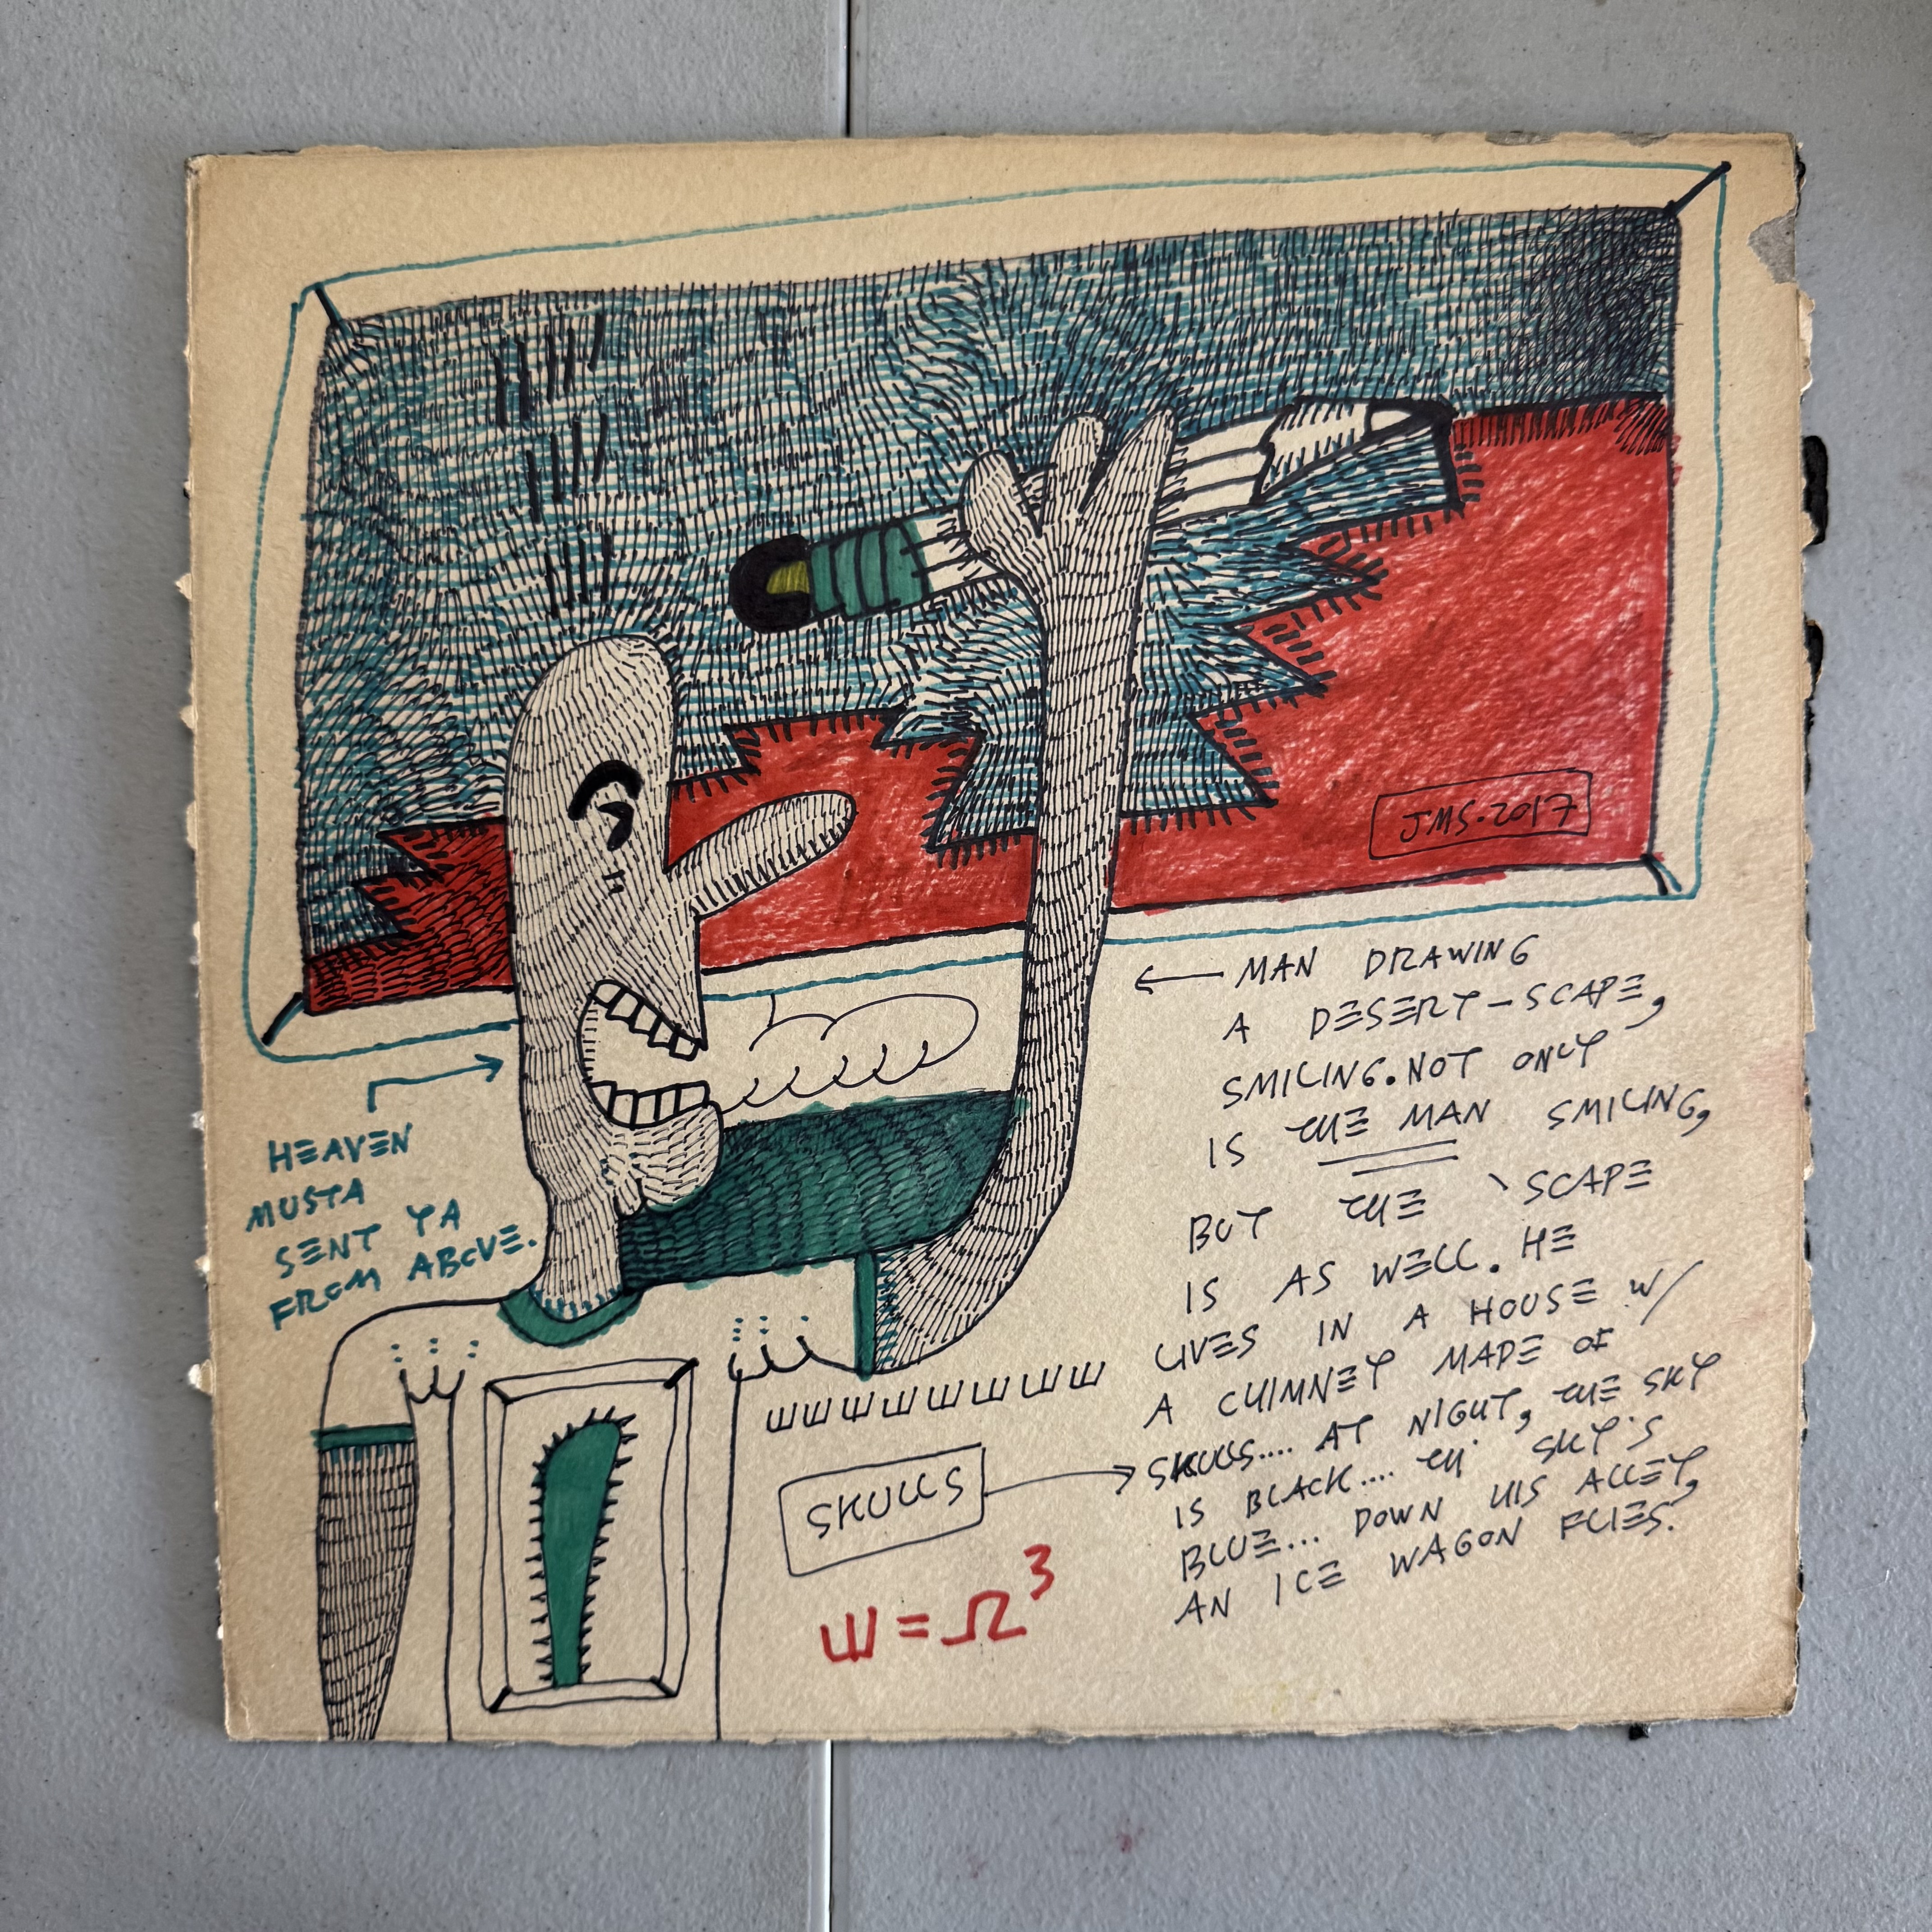 JMS.2017
← MAN DRAWING
A DESERT-SCAPE,
SMILING. NOT ONLY
IS THE MAN SMILING,
BUT THE 'SCAPE
IS AS WELL. HE
LIVES IN A HOUSE W/
A CHIMNEY MADE OF
SKULLS.... AT NIGHT, THE SKY
IS BLACK.... TH' SKY'S
BLUE... DOWN HIS ALLEY,
AN ICE WAGON FLIES.
HEAVEN
MUSTA
SENT YA
FROM ABOVE.
ШШШШШШШШ
SKULLS →
Ш = Ω³